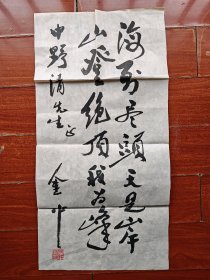 海到尽頭天是岸
山登绝頂我为峰
中野清先生正
金中